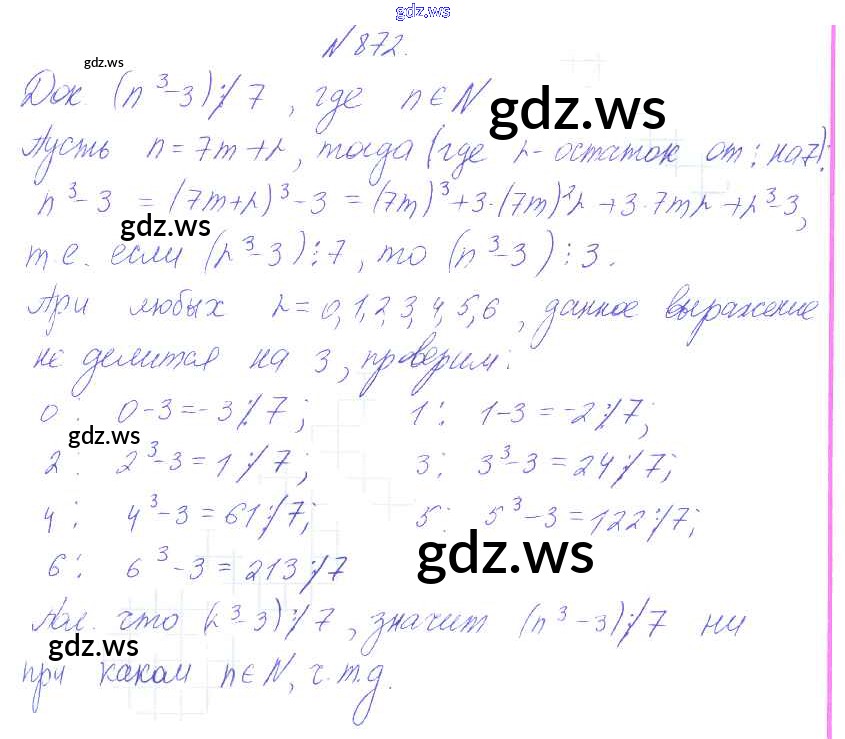 gdz.ws
N 872.
gdz.ws
Док. (n³-3)⋮̸7, где n∈N
gdz.ws
Пусть n=7m+r, тогда (где r- остаток от : на 7):
n³-3 = (7m+r)³-3 = (7m)³+3·(7m)²r+3·7mr+r³-3,
gdz.ws
т.е. если (r³-3)⋮7, то (n³-3)⋮3.
При любых r=0,1,2,3,4,5,6, данное выражение
не делится на 3, проверим:
0: 0-3=-3⋮̸7; 1: 1-3=-2⋮̸7;
gdz.ws
2: 2³-3=1⋮̸7; 3: 3³-3=24⋮̸7;
4: 4³-3=61⋮̸7; 5: 5³-3=122⋮̸7;
gdz.ws
6: 6³-3=213⋮̸7
Пол. что (r³-3)⋮̸7, значит (n³-3)⋮̸7 ни
gdz.ws
при каком n∈N, ч.т.д.